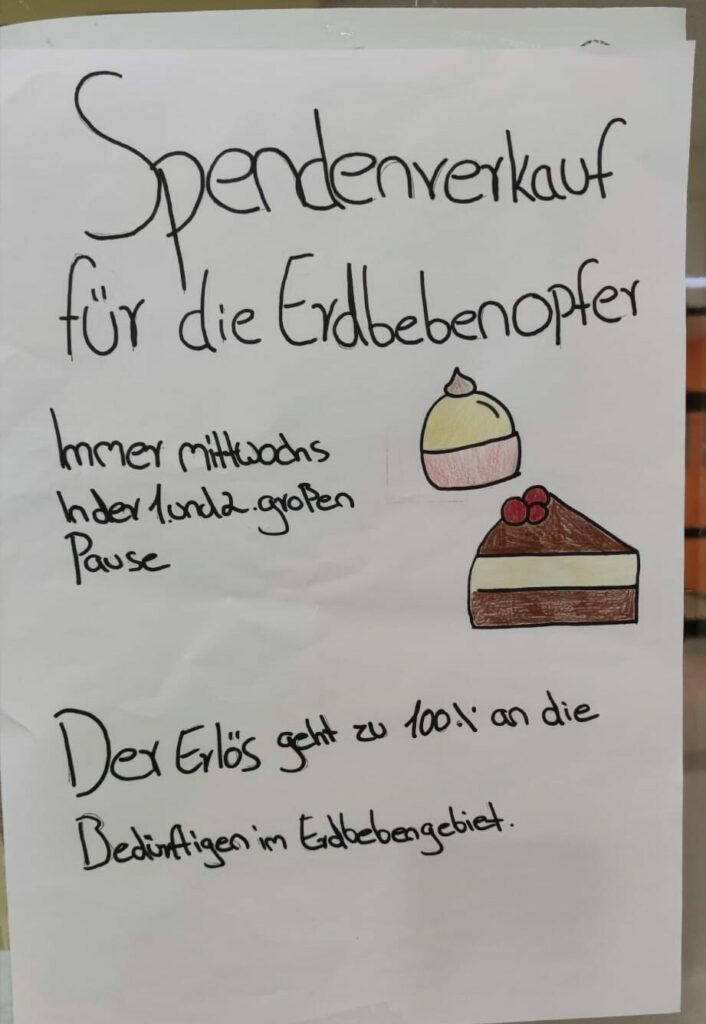 Spendenverkauf
für die Erdbebenopfer
Immer mittwochs
In der 1. und 2. großen
Pause
Der Erlös geht zu 100% an die
Bedürftigen im Erdbebengebiet.